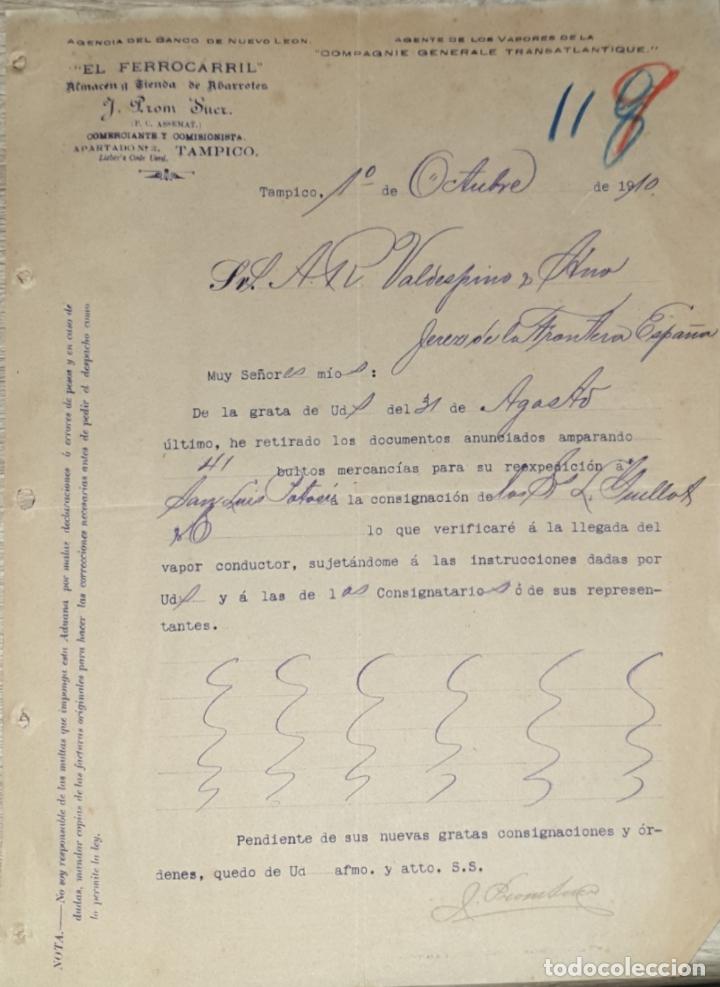 AGENCIA DEL BANCO DE NUEVO LEON.
AGENTE DE LOS VAPORES DE LA
"COMPAGNIE GENERALE TRANSATLANTIQUE."
"EL FERROCARRIL"
Almacen y Tienda de Abarrotes
J. Prom Sucr.
(P. C. ASSEMAT.)
COMERCIANTE Y COMISIONISTA.
APARTADO No. 3, TAMPICO.
Lieber's Code Used.
118
Tampico, 1º de Octubre de 1910
Sres. A. R. Valdespino y Hno
Jerez de la Frontera España
Muy Señores míos:
De la grata de Uds del 31 de Agosto
último, he retirado los documentos anunciados amparando
41 bultos mercancías para su reexpedición á
San Luis Potosí á la consignación de los Sres L. Guillot
y C lo que verificaré á la llegada del
vapor conductor, sujetándome á las instrucciones dadas por
Uds y á las de los Consignatarios ó de sus represen-
tantes.
Pendiente de sus nuevas gratas consignaciones y ór-
denes, quedo de Ud afmo. y atto. S.S.
J. Prom Sucr
NOTA.—No soy responsable de las multas que imponga esta Aduana por malas declaraciones ó errores de pesos y en caso de
dudas, mandar copias de las facturas originales para hacer las correcciones necesarias antes de pedir el despacho como
lo permite la ley.
todocoleccion